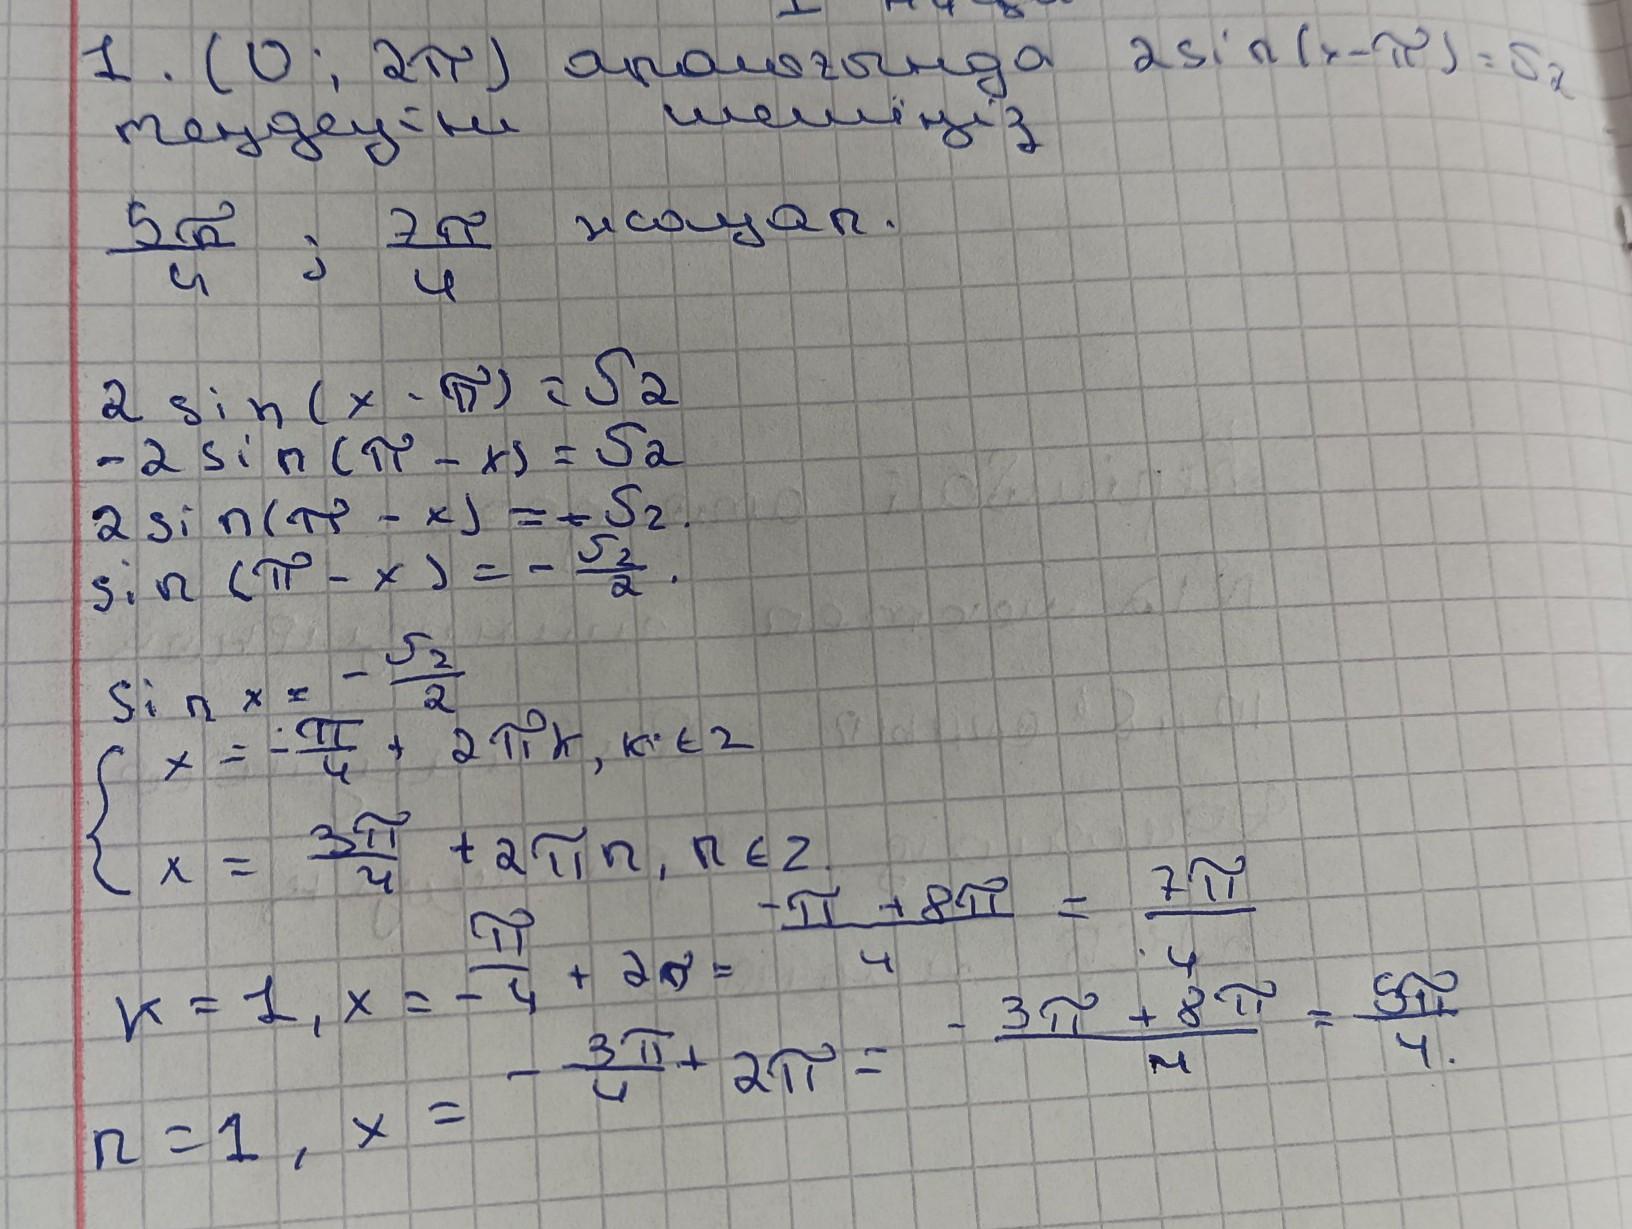 1. (0; 2π) аралығында 2sin(x-π)=√2
теңдеуіні шешіңіз
5π/4 ; 7π/4 жауап.
2 sin(x - π) = √2
-2 sin(π - x) = √2
2 sin(π - x) = -√2.
sin (π - x) = - √2/2.
sin x = - √2/2
{ x = -π/4 + 2πk, k ∈ Z
x = 3π/4 + 2πn, n ∈ Z.
k = 1, x = - π/4 + 2π = -π + 8π/4 = 7π/4
n = 1, x = - 3π/4 + 2π = - 3π + 8π/4 = 5π/4.